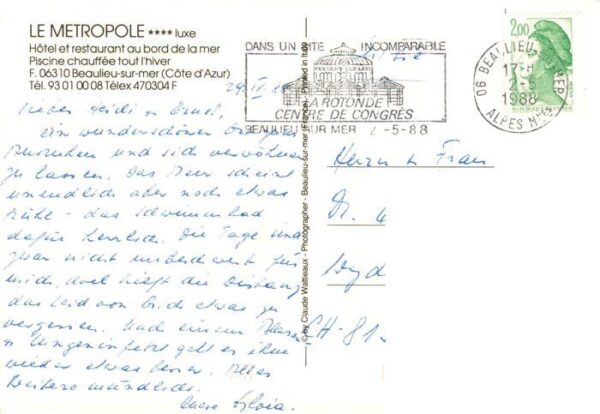 LE METROPOLE **** luxe
Hôtel et restaurant au bord de la mer
Piscine chauffée tout l'hiver
F. 06310 Beaulieu-sur-mer (Côte d'Azur)
Tél. 93 01 00 08 Télex 470304 F
Lieber Heidi u. Ernst,
ein wunderschöner
Ausruhen und sich verwöhnen
zu lassen. Das Meer scheint
unendlich aber noch etwas
kühl - das Schwimmbad
dafür herrlich. Die Tage sind
zwar nicht unbeschwert für
mich, doch hilft die Distanz
das Leid von etwas zu
vergessen. Nach einem
geht es ihm
wieder etwas besser. Alles
Weitere mündlich.
Eure Sylvia
© by Claude Wattieaux - Photographer - Beaulieu-sur-mer (France) - Printed in Italy
DANS UN SITE INCOMPARABLE
LA ROTONDE
CENTRE DE CONGRÈS
BEAULIEU SUR MER 2-5-88
06 BEAULIEU S. MER
17-H
2-5
1988
ALPES MMES
2,00
Herrn u Frau
CH-81